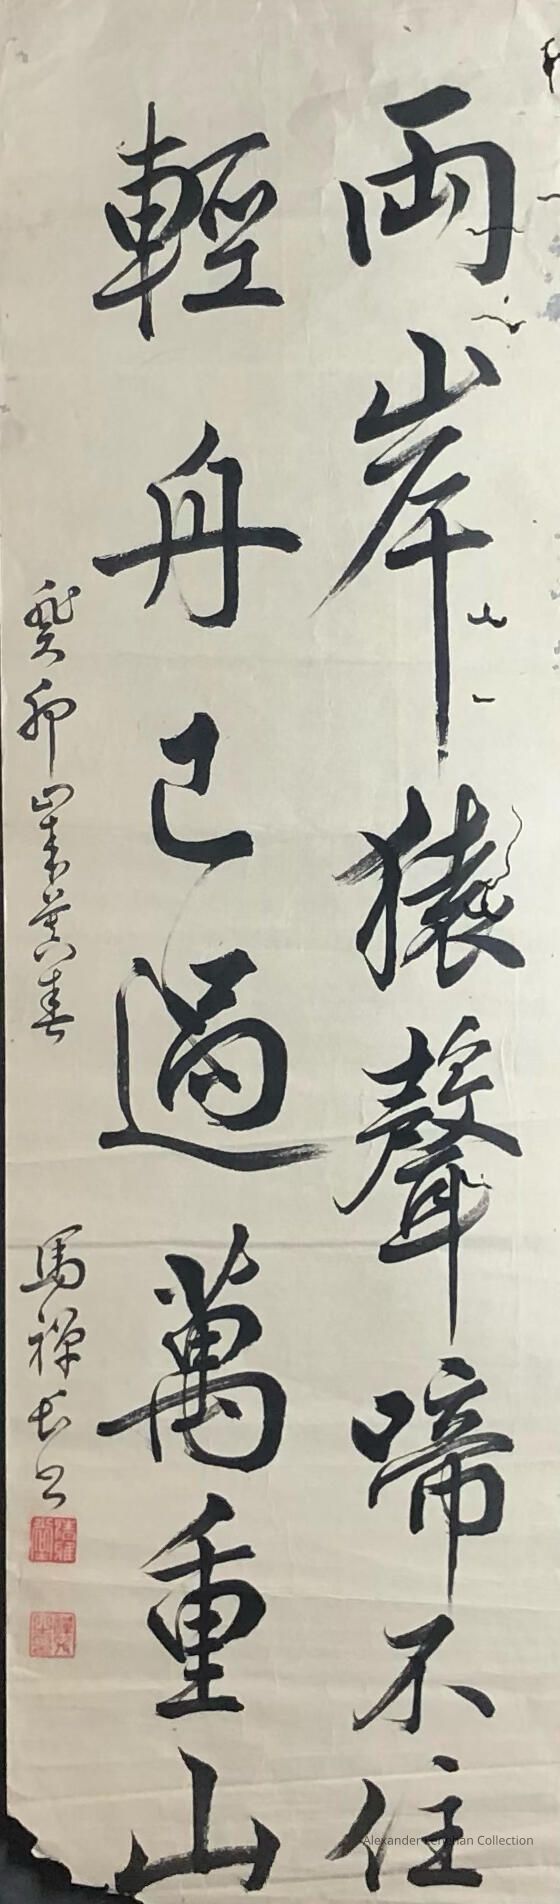 兩岸猿聲啼不住
輕舟已過萬重山
癸卯
馬禪
Alexander Lenghan Collection